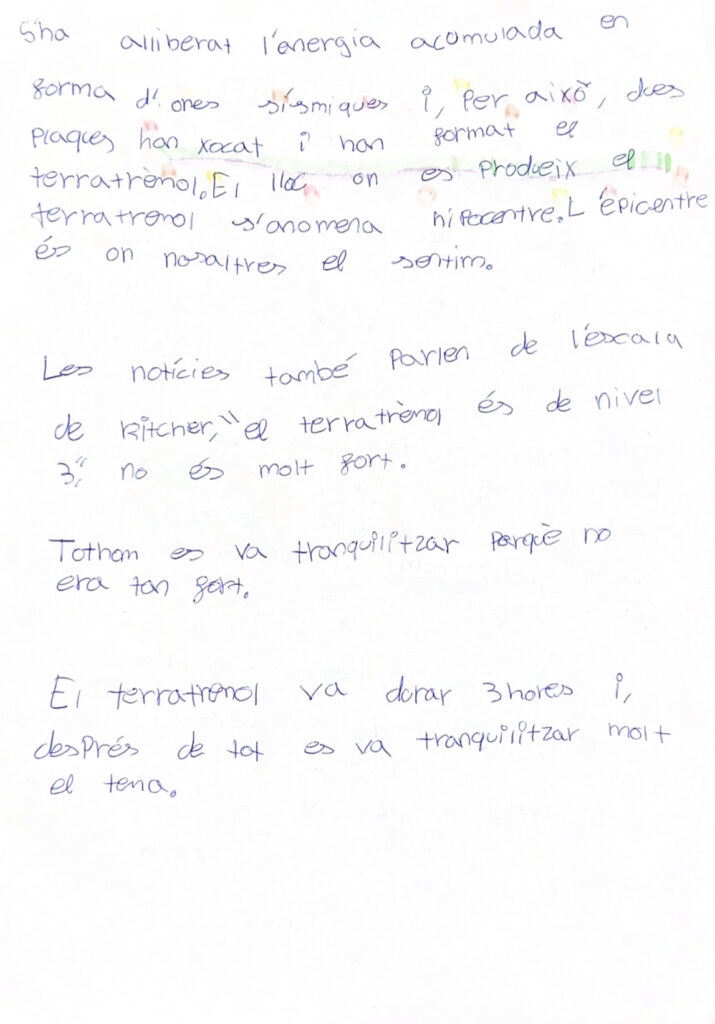 S'ha alliberat l'energia acomulada en
forma d'ones sísmiques i, per això, dues
plaques han xocat i han format el
terratrènol. El lloc on es produeix el
terratrenol s'anomena hipocentre. L'épicentre
és on nosaltres el sentim.
Les notícies també parlen de l'éscala
de Ritcher, "el terratrènol és de nivel
3", no és molt fort.
Tothom es va tranquilitzar parquè no
era tan fort.
El terratrenol va durar 3 hores i,
després de tot es va tranquilitzar molt
el tema.